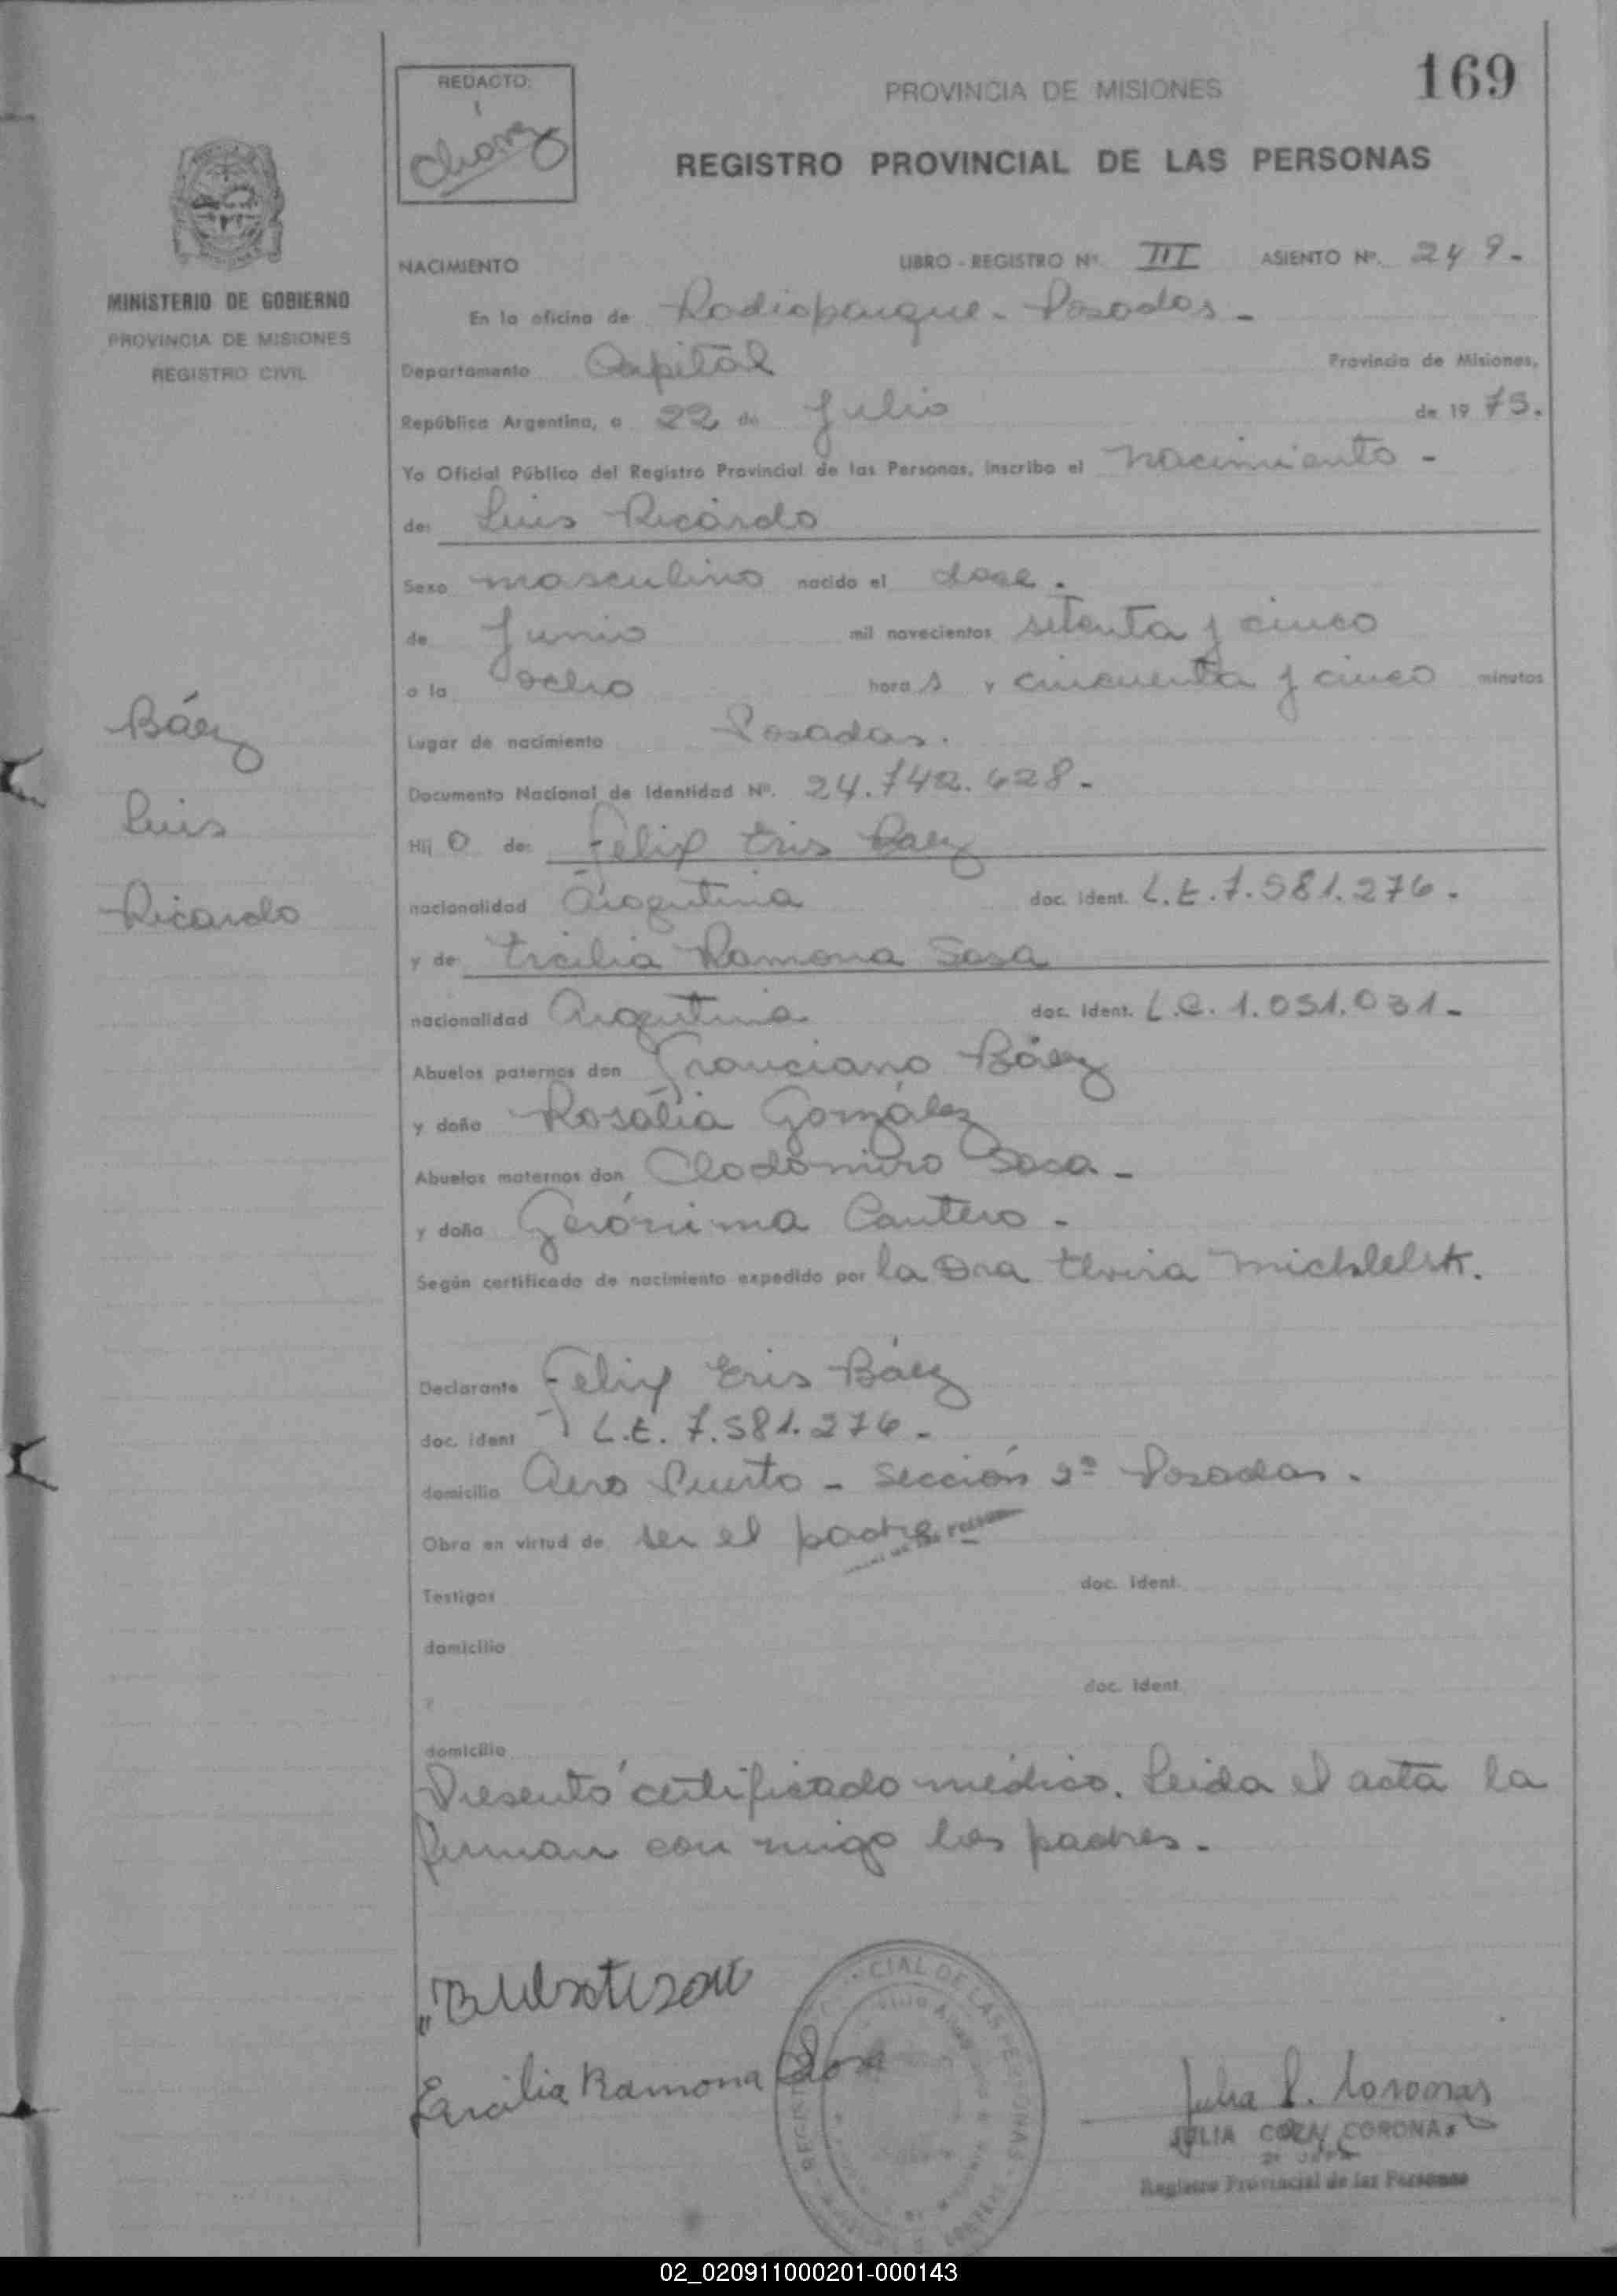 169
REDACTO:
Chávez
PROVINCIA DE MISIONES
REGISTRO PROVINCIAL DE LAS PERSONAS
MINISTERIO DE GOBIERNO
PROVINCIA DE MISIONES
REGISTRO CIVIL
NACIMIENTO LIBRO - REGISTRO Nº. III ASIENTO Nº. 249.-
En la oficina de Radioparque - Posadas -
Departamento Capital Provincia de Misiones,
República Argentina, a 22 de Julio de 1975.
Yo Oficial Público del Registro Provincial de las Personas, inscribo el nacimiento -
de: Luis Ricardo
Sexo masculino nacido el doce.
de Junio mil novecientos setenta y cinco
a la ocho hora s y cincuenta y cinco minutos
Báez
Luis
Ricardo
Lugar de nacimiento Posadas.
Documento Nacional de Identidad Nº. 24.742.628-
Hij o de: Felix Eris Baez
nacionalidad Argentina doc. ident. L.E. 7.581.276.
y de Ercilia Ramona Sosa
nacionalidad Argentina doc. ident. L.C. 1.051.031-
Abuelos paternos don Graciano Báez
y doña Rosalia González
Abuelos maternos don Clodomiro Sosa -
y doña Gerónima Cantero -
Según certificado de nacimiento expedido por la Dra Elvira
Declarante Felix Eris Báez
doc. ident L.E. 7.581.276.
domicilio Aero Puerto - Sección 2ª Posadas.
Obra en virtud de ser el padre
Testigos doc. ident.
domicilio
y doc. ident.
domicilio
Presentó certificado médico. Leida el acta la
firman con migo los padres.-
Ercilia Ramona Sosa
Julia Coronas
JULIA CORONAS
Registro Provincial de las Personas
02_020911000201-000143